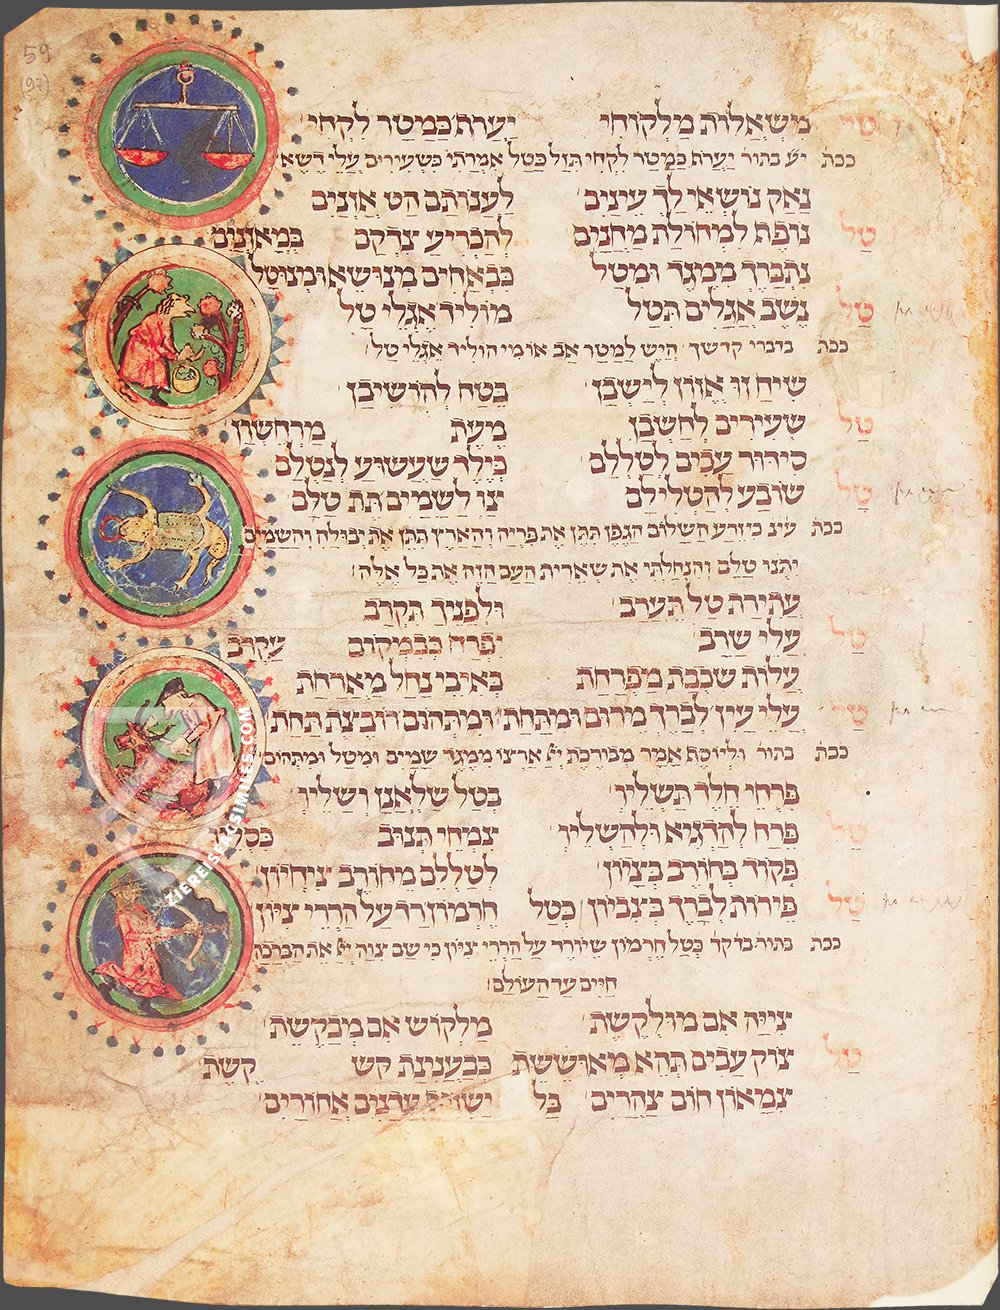 59
(97)
משאלות מלקוחי יערת כמטר לקחי טל
ככת יע בתור יערף כמטר לקחי תזל כטל אמרתי כשעירים עלי דשא
נאק נושאי לך עינים לענותם הט אזנים
נופת למחולת מחנים להכריע צדקם במאזנים טל
נתברך ממגד ומטל כבאחים מנושא ומנוטל
נשב אגלים תטל מוליד אגלי טל טל
ככת בדברי קדשך היש למטר אב או מי הוליד אגלי טל
שיח זו אזון לישבן בטח להושיבן
שעירים לחשבן מעת מרחשון טל
סידור עבים לטללם כילד שעשוע לנטלם
שובע להטלילם צו לשמים תת טלם טל
ככת כי זרע השלום הגפן תתן את פריה והארץ תתן את יבולה והשמים
יתנו טלם והנחלתי את שארית העם הזה את כל אלה
עתירת טל תערב ולפניך תקרב
עלי שרב יפרח עקרב טל
עלות שכבת מפרחת באיבי נחל מארחת
עלי עין לברך מרום ומתחת ומתהום רובצת תחת טל
ככת בתור וליוסף אמר מבורכת ארצו ממגד שמים ומטל ומתהום
פרחי חלד תשליו בטל שלאנן ושליו
פרח להדגיא ולהשליו צמחי תנוב בכסליו טל
פקוד בחורב בציון לטללם מחורב ציחיון
פירות לברך בצביון כטל חרמון רד על הררי ציון טל
ככת בתור כטל חרמון שיורד על הררי ציון כי שם צוה את הברכה
חיים עד העולם
ציה אם מולקשת מלקוש אם מבקשת
צוק עבים תהא מאוששת קש קשת טל
צמאון חום צהרים כל
ZIEREISFACSIMILES.COM